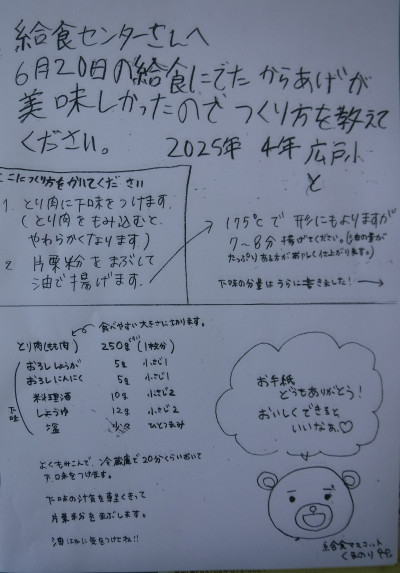 給食センターさんへ
6月20日の給食にでた からあげが
美味しかったので つくり方を教えて
ください。 2025年 4年 広戸小
と
ここにつくり方をかいてください
1. とり肉に下味をつけます。
(とり肉をもみ込むと、
やわらかくなります)
2 片栗粉をまぶして
油で揚げます。
175℃で 形にもよりますが
7〜8分 揚げてください。(油の量が
たっぷりある方がおいしく仕上がります。)
下味の分量はうらに書きました!→
食べやすい大きさに切ります。
とり肉(もも肉) 250g(1枚分)
下味
おろししょうが 5g 小さじ1
おろしにんにく 5g 小さじ1
料理酒 10g 小さじ2
しょうゆ 12g 小さじ2
塩 少々 ひとつまみ
よくもみこんで、冷蔵庫で20分くらいおいて
下味をつけます。
下味の汁気を軽くきって
片栗粉をまぶします。
油はねに気をつけてね!!
お手紙
どうもありがとう!
おいしくできると
いいなぁ♡
給食マスコット
くまのり